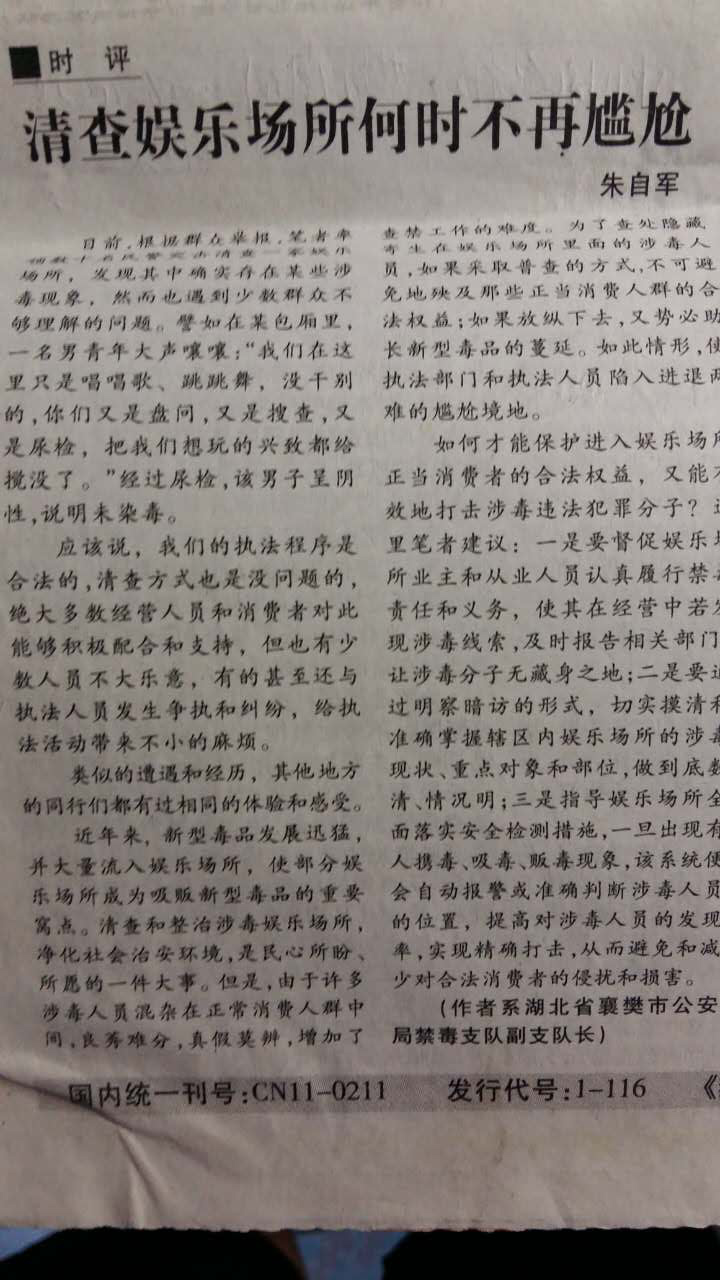 时 评
清查娱乐场所何时不再尴尬
朱自军
日前,根据群众举报,笔者率
场所,发现其中确实存在某些涉
毒现象,然而也遇到少数群众不
够理解的问题。譬如在某包厢里,
一名男青年大声嚷嚷:“我们在这
里只是唱唱歌、跳跳舞,没干别
的,你们又是盘问,又是搜查,又
是尿检,把我们想玩的兴致都给
搅没了。”经过尿检,该男子呈阴
性,说明未染毒。
应该说,我们的执法程序是
合法的,清查方式也是没问题的,
绝大多数经营人员和消费者对此
能够积极配合和支持,但也有少
数人员不大乐意,有的甚至还与
执法人员发生争执和纠纷,给执
法活动带来不小的麻烦。
类似的遭遇和经历,其他地方
的同行们都有过相同的体验和感受。
近年来,新型毒品发展迅猛,
并大量流入娱乐场所,使部分娱
乐场所成为吸贩新型毒品的重要
窝点。清查和整治涉毒娱乐场所,
净化社会治安环境,是民心所盼、
所愿的一件大事。但是,由于许多
涉毒人员混杂在正常消费人群中
间,良莠难分,真假莫辨,增加了
查禁工作的难度。为了查处隐藏
寄生在娱乐场所里面的涉毒人
员,如果采取普查的方式,不可避
免地殃及那些正当消费人群的合
法权益;如果放纵下去,又势必助
长新型毒品的蔓延。如此情形,使
执法部门和执法人员陷入进退两
难的尴尬境地。
如何才能保护进入娱乐场所
正当消费者的合法权益,又能有
效地打击涉毒违法犯罪分子?这
里笔者建议:一是要督促娱乐场
所业主和从业人员认真履行禁毒
责任和义务,使其在经营中若发
现涉毒线索,及时报告相关部门
让涉毒分子无藏身之地;二是要通
过明察暗访的形式,切实摸清和
准确掌握辖区内娱乐场所的涉毒
现状、重点对象和部位,做到底数
清、情况明;三是指导娱乐场所全
面落实安全检测措施,一旦出现有
人携毒、吸毒、贩毒现象,该系统便
会自动报警或准确判断涉毒人员
的位置,提高对涉毒人员的发现
率,实现精确打击,从而避免和减
少对合法消费者的侵扰和损害。
(作者系湖北省襄樊市公安
局禁毒支队副支队长)
国内统一刊号:CN11-0211 发行代号:1-116